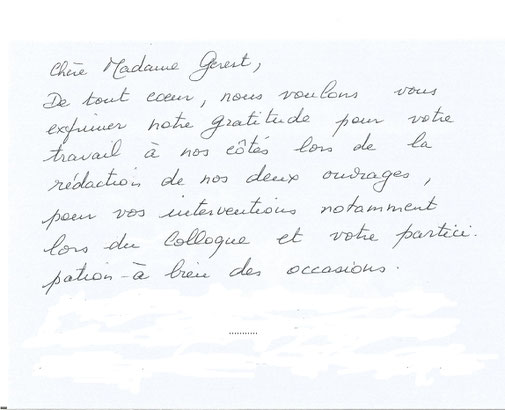 Chère Madame Gerest,
De tout cœur, nous voulons vous
exprimer notre gratitude pour votre
travail à nos côtés lors de la
rédaction de nos deux ouvrages,
pour vos interventions notamment
lors du Colloque et votre partici-
pation à bien des occasions.
...........